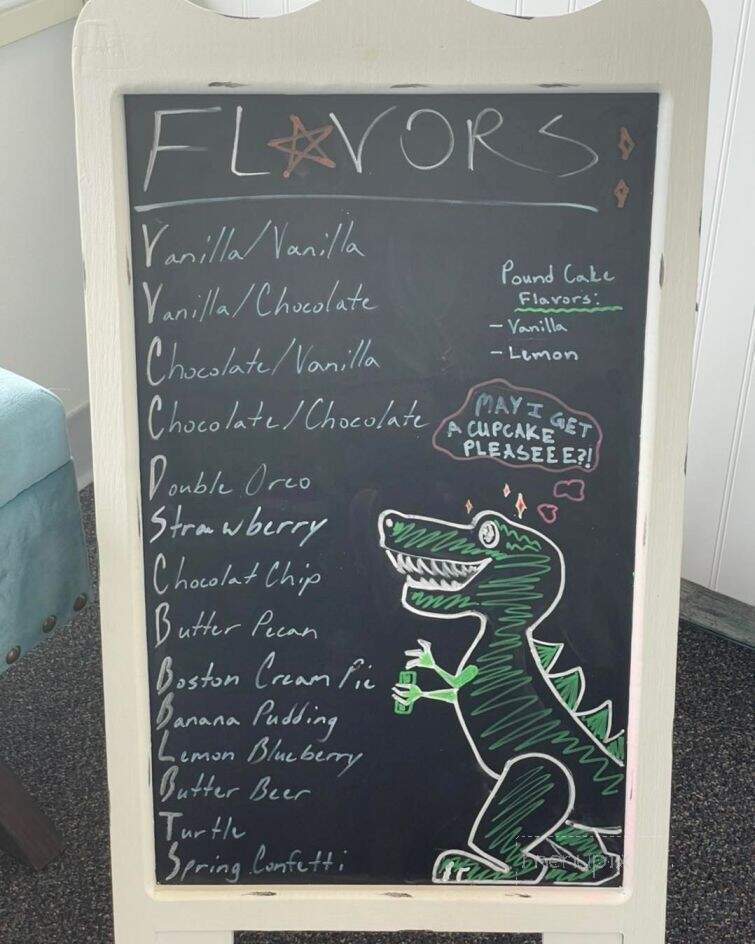 FLAVORS
Vanilla/Vanilla
Vanilla/Chocolate
Chocolate/Vanilla
Chocolate/Chocolate
Double Oreo
Strawberry
Chocolat Chip
Butter Pecan
Boston Cream Pie
Banana Pudding
Lemon Blueberry
Butter Beer
Turtle
Spring Confetti
Pound Cake
Flavors:
- Vanilla
- Lemon
MAY I GET
A CUPCAKE
PLEASEEE?!